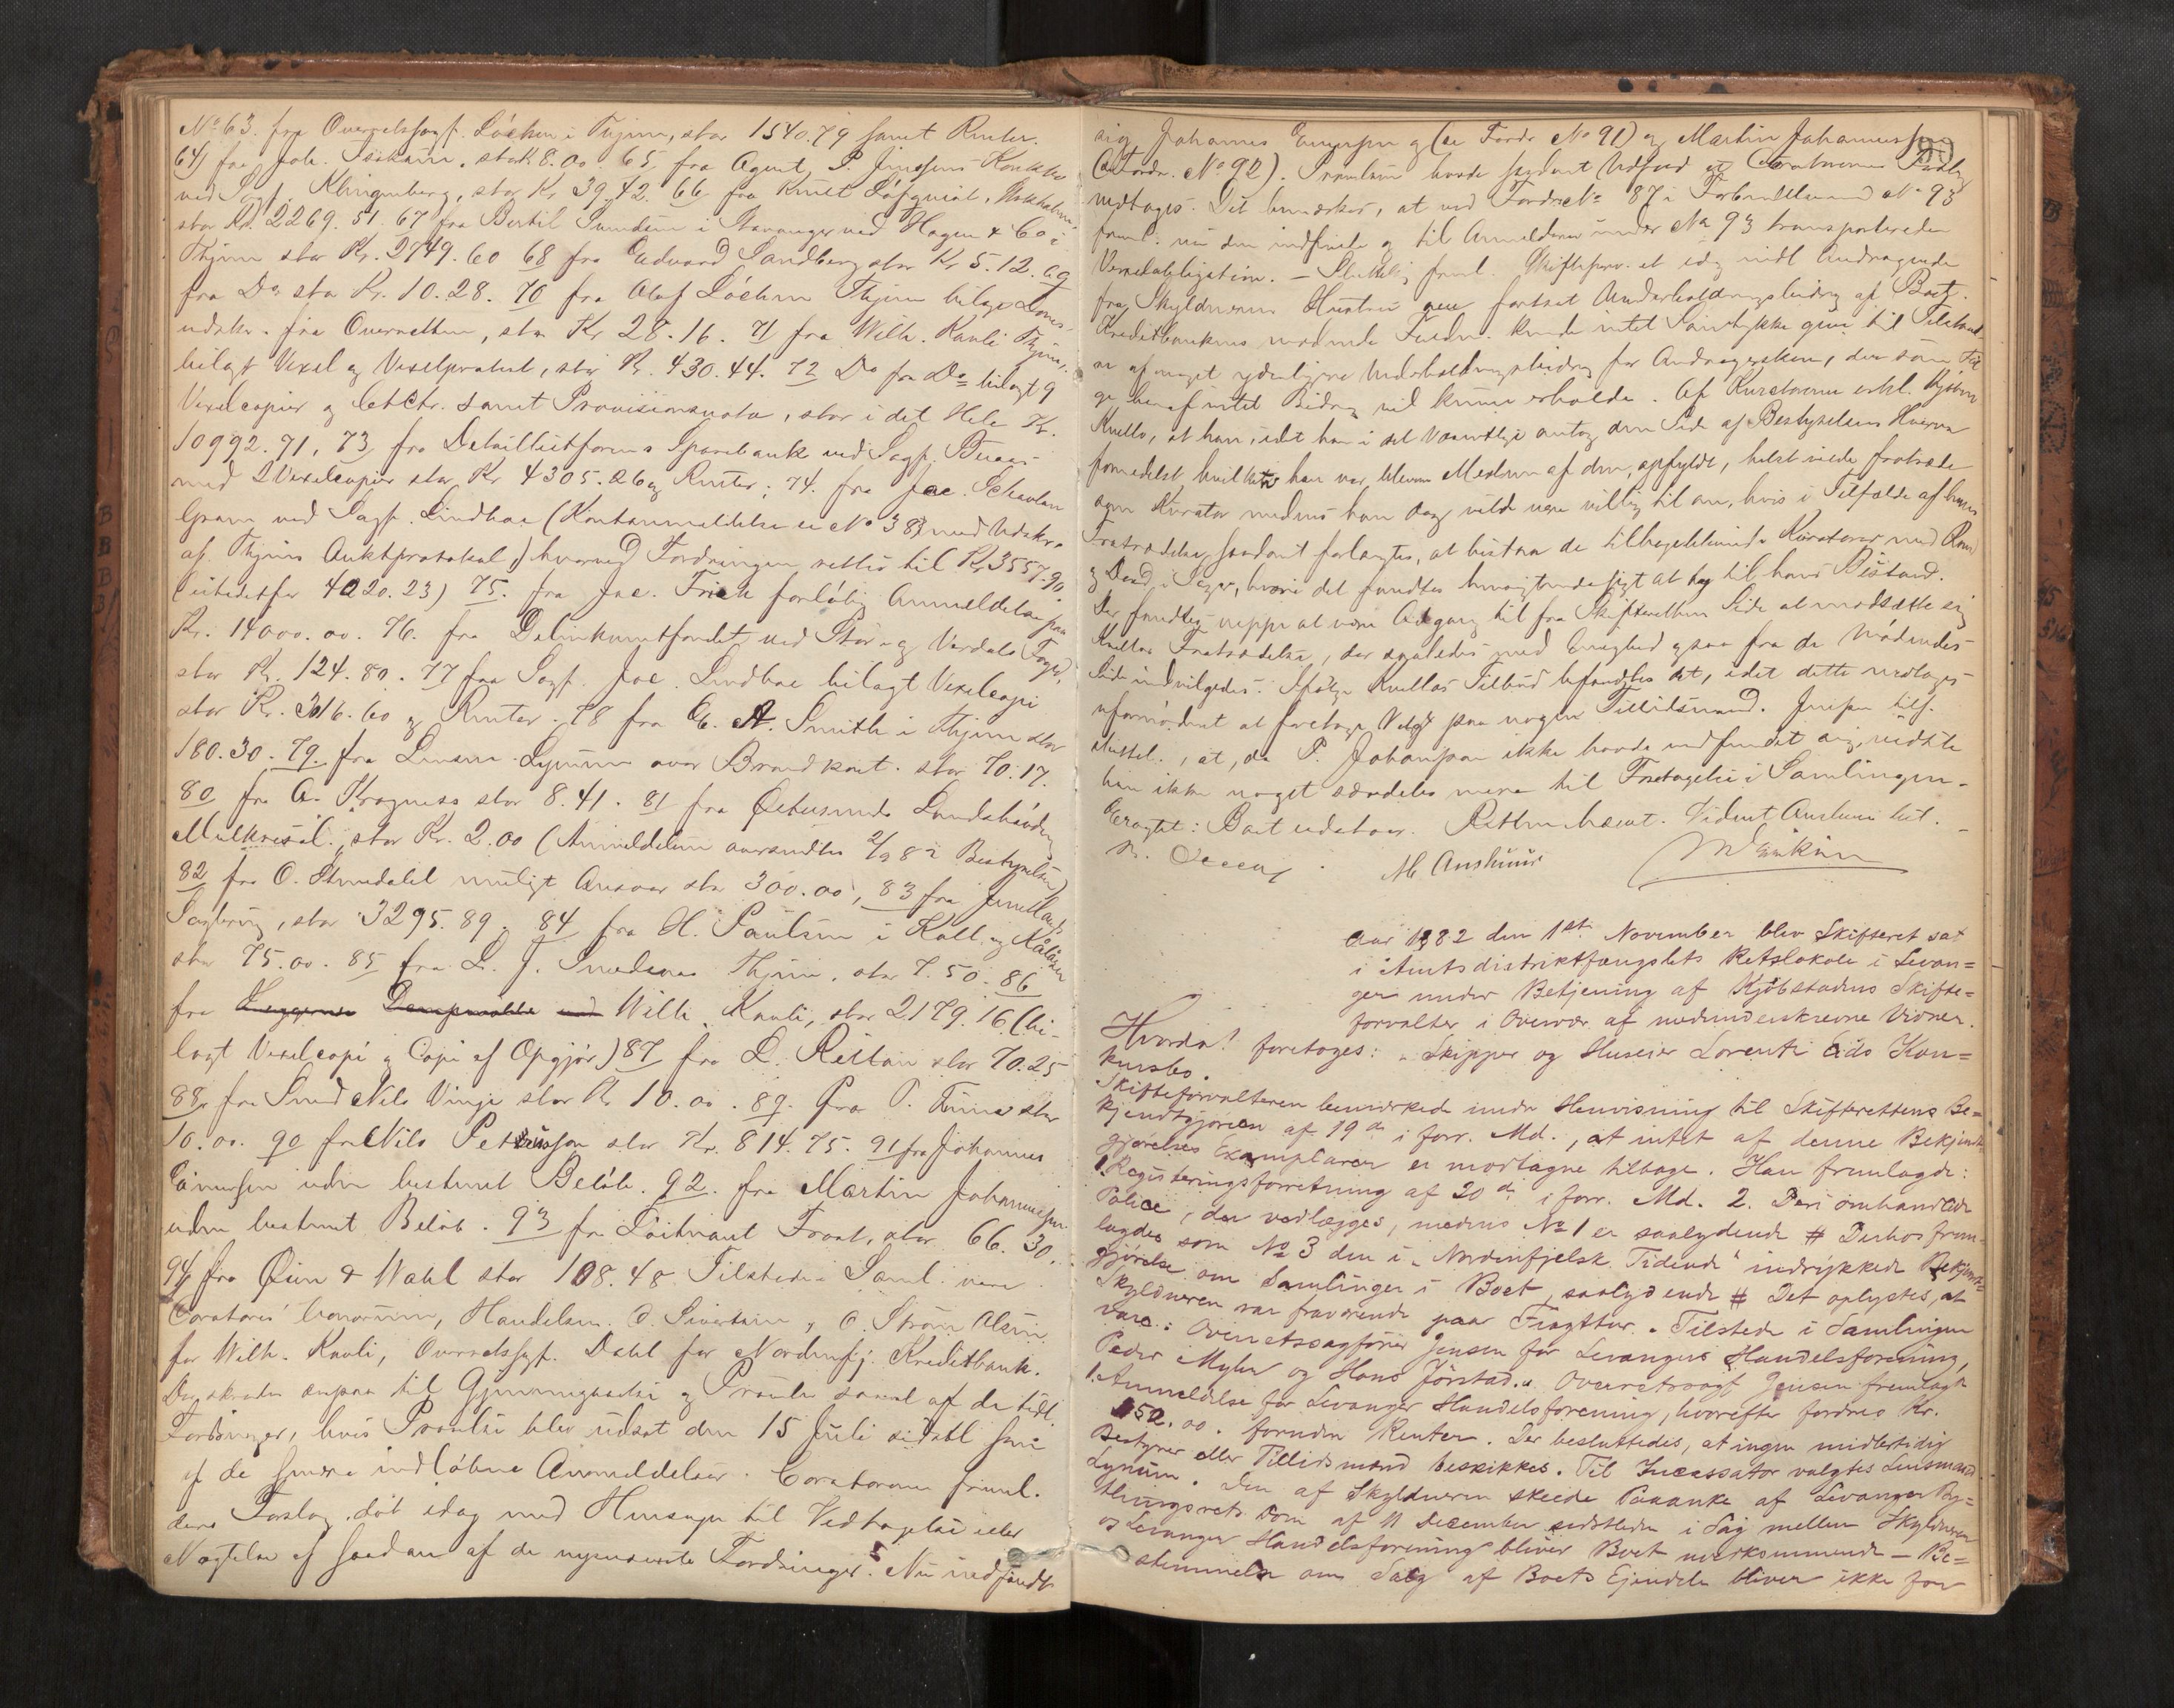 No 63. fra Overretssagf. Löchen i Thjem, stor 1540.79 samt Renter.
64) fra Joh. stor 8.00 65 fra Agent P. Jenssens Konkbo
ved Sagf. Klingenberg, stor Kr 39.42. 66 fra Knut Löfquist,
stor Kr. 2269.51. 67 fra Bertil Sundem i Stavanger ved Hagen & Co i
Thjem stor Kr. 2749.60 68 fra Edvard Sandberg stor Kr 5.12. 69
fra Do stor Kr. 10.28. 70 fra Olaf Löchen Thjem bilagt Doms-
udskr. fra Overretten, stor Kr 28.16. 71 fra Wilh. Kavli Thjem,
bilagt Vexel og Vexelprotest, stor Kr. 430.44. 72 Do fra Do bilagt 9
Vexelcopier og samt Provisionsnota, stor i det Hele Kr.
10992.71, 73 fra Sparebank ved Sagf.
med 2 Vexelcopier stor Kr 4305.26 og Renter; 74. fra Jac. Schavlan
ved Sagf. Lindboe (Kontraanmeldelse se No 38) med Udskr.
af Thjems Auktprotokol, hvorved Fordringen rettes til Kr 3557.90
(istedetfor 4020.23) 75. fra Jac. Trich forløbig Anmeldelse paa
Kr. 14000.00. 76. fra Delinkventfondet ved Stör- og Verdals Foged,
stor Kr. 124.80. 77 fra Sagf. Joc. Lindboe bilagt Vexelcopi
stor Kr. 316.60 og Renter. 78 fra C. A. Smith i Thjem stor
180.30. 79. fra Lensm. Lynum over Brandkont. stor 70.17.
80 fra A. Kragness stor 8.41. 81 fra Östersunds Landshövding
stor Kr. 2.00 (Anmeldelsen oversendtes 2/9 82 Bestyrelsen)
82 fra O. Stundahl muligt Ansvar stor 300.00, 83 fra
stor 3295.89. 84 fra H. Paulsen i Kall og
stor 75.00. 85 fra L. J. Thjem, stor 7.50. 86
fra Wilh. Kavli, stor 2179.16 (bi-
lagt Vexelcopi og Copi af Opgjør) 87 fra L. Rettan stor 70.25
88 fra Smed Nils Vinge stor Kr 10.00. 89. fra P. stor
10.00. 90 fra Nils Petersson stor Kr. 814.75. 91 fra Johannes
Einersen uden bestemt Beløb. 92. fra Martin Johannessen
uden bestemt Beløb. 93 fra Löitnant Frost, stor 66.30.
94 fra Öien & Wahl stor 108.48 Tilstede i Saml. vare
Curatores bonorum, Handelsm. O. Sivertsen, O. Ström Olsen
for Wilh. Kavli, Overretssagf. Dahl for Nordenfj. Kreditbank.
Da skredes ogsaa til Gjennemgaaelse og Prøvelse saavel af de tidl.
Fordringer, hvis Prøvelse blev udsat den 15 Juli sidstl. som
af de senere indløbne Anmeldelser. Curatorerne freml.
deres Forslag, dat. idag med Hensyn til Vedtagelse eller
Nægtelse af saadan af de nysnævnte Fordringer. Nu indfandt
sig Johannes Einersen (se Fordr. No 91) og Martin Johannessen
(se Fordr. No 92). Prøvelsen havde saadant Udfald at Curatorernes Forslag
vedtoges. Det bemærkes, at ved Fordr. No 87 i Forbindelse med No 93
freml. nu den indfriede og til Anmelderen under No 93 transporterede
Vexelobligation. – Endelig freml. Skifteforv. et idag indl. Andragende
fra Skyldnerens Hustru om fortsat Underholdningsbidrag af Boet.
Kreditbankens mødende Fuldm. kunde intet Samtykke give til Tilstaael-
se af noget yderligere Underholdningsbidrag for Andragersken, der som Føl-
ge heraf intet Bidrag vil kunne erholde. Af Kuratorerne erkl.
Kvello, at han, idet han i det Væsentlige antog den Side af Bestyrelsens Hverv
formedelst hvilket han var bleven Medlem af den, opfyldt, helst vilde fratræde
som Kurator medens han dog vilde være villig til om, hvis i Tilfælde af hans
Fratrædelse saadant forlangtes, at bistaa de tilbageblivende Kuratorer med Raad
og Daad i Sager, hvori det fandtes hensigtsmæssigt at tage til hans Bistand.
Der fandtes neppe at være Adgang til fra Skifterettens Side at modsætte sig
Kvellos Fratrædelse, der saaledes med Enighed ogsaa fra de Mødendes
Side indvilgedes. Ifølge Kvellos Tilbud befandtes det, idet dette modtoges
ufornødent at foretage Valg paa nogen Tillidsmand. Jensen tilf.
sluttel., at, da P. Johanson ikke havde indfundet sig, vidste
han ikke noget særdeles mere til Foretagelse i Samlingen.
Eragtet: Boet udstaar. Retten hævet. Vidnet Anshuus tilst.
M. Anshuus
Aar 1882 den 1ste November blev Skifteret sat
i Amtsdistriktfængslets Retslokale i Levan=
ger under Betjening af Kjöbstadens Skifte=
forvalter i Overvær af nedenunderskrevne Vidner.
Hvorda! foretoges: Skipper og Huseier Lorents Eids Kon=
kursbo.
Skifteforvalteren bemærkede under Henvisning til Skifterettens Be=
kjendtgjörelse af 19de i forr. Md., at intet af denne Bekjendt=
gjørelses Exemplarer er modtagne tilbage. Han fremlagde:
1. Registreringsforretning af 20de i forr. Md. 2. Deri omhandlede
Police, der vedlægges, medens No 1 er saalydende # Derhos frem=
lagdes som No 3 den i "Nordenfjelsk Tidende" indrykkede Bekjendt=
gjörelse om Samlinger i Boet, saalydende # Det oplystes, at
Skyldneren var fraværende paa Fragttur. Tilstede i Samlingen
vare: Overretssagförer Jensen for Levangers Handelsforening,
Peder Myhr og Hans Jörstad. Overretssagf Jensen fremlagde
1. Anmeldelse for Levanger Handelsforening, hvorefter fordres Kr.
152.00. foruden Renter. Der besluttedes, at ingen midlertidig
Bestyrer eller Tillidsmand beskikkes. Til Incassator valgtes Lensmand
Lynum. Den af Skyldneren skeede Paaanke af Levanger By=
thingsrets Dom af 11 December sidstleden i Sag mellem Skyldneren
og Levanger Handelsforening bliver Boet uvedkommende – Be=
stemmelse om Salg af Boets Ejendele bliver ikke for